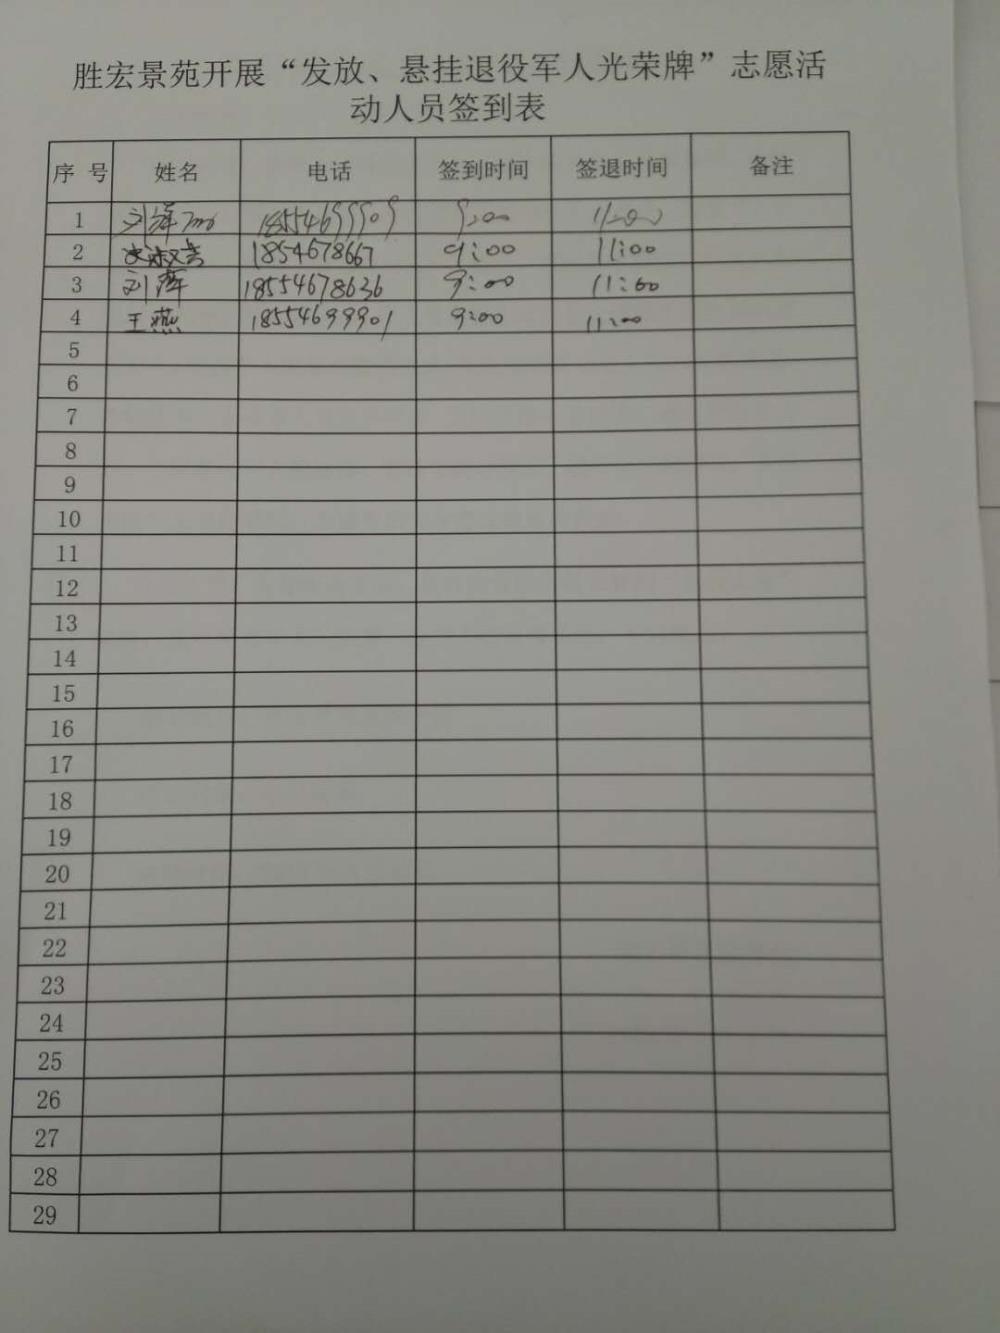 胜宏景苑开展“发放、悬挂退役军人光荣牌”志愿活
动人员签到表
序 号 姓名 电话 签到时间 签退时间 备注
1 刘泽 18554699909 9:00 11:00
2 1854678667 9:00 11:00
3 刘萍 18554678636 9:00 11:00
4 王燕 18554699901 9:00 11:00
5
6
7
8
9
10
11
12
13
14
15
16
17
18
19
20
21
22
23
24
25
26
27
28
29